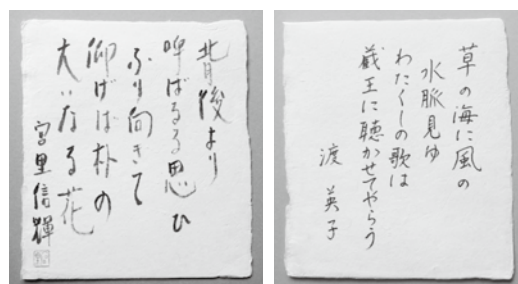 背後より
呼ばるる思ひ
ふり向きて
仰げば朴の
大いなる花
宮里信輝
草の海に風の
水脈見ゆ
わたくしの歌は
蔵王に聴かせてやらう
渡英子